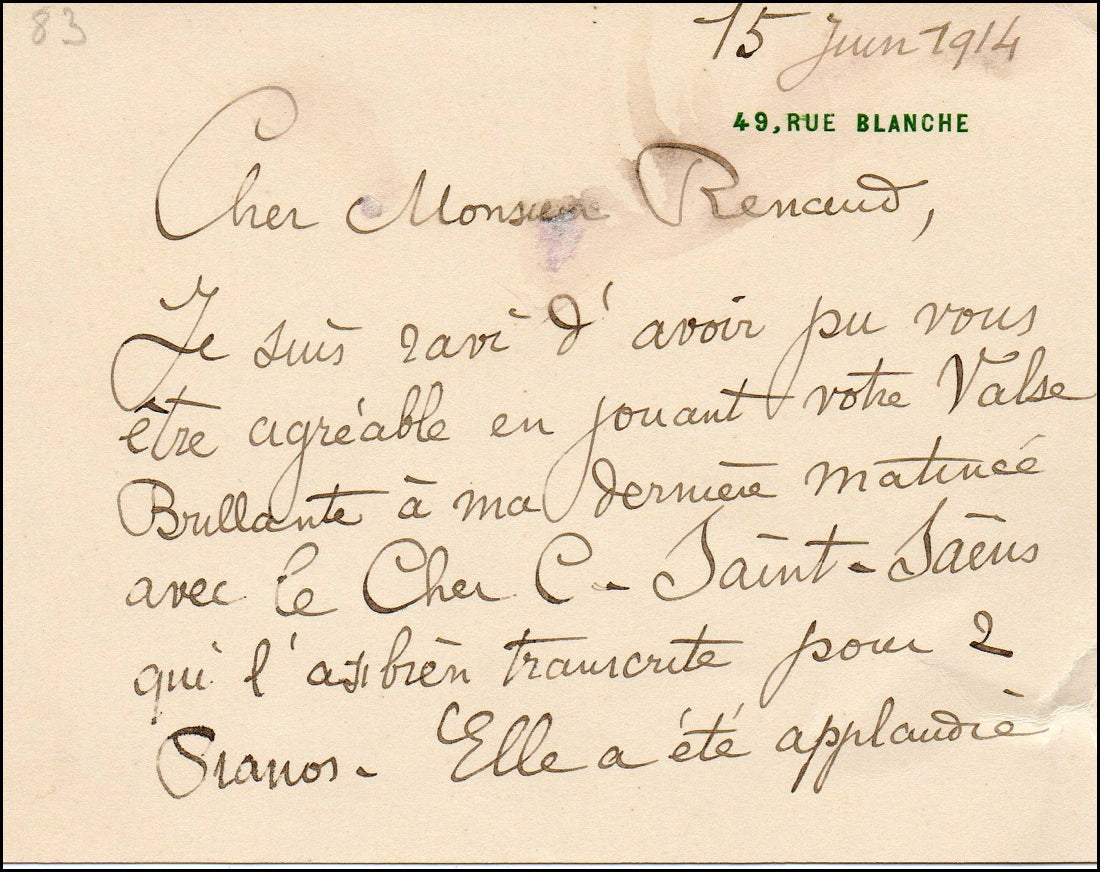 83
15 Juin 1914
49, RUE BLANCHE
Cher Monsieur Renaud,
Je suis ravi d'avoir pu vous
être agréable en jouant votre Valse
Brillante à ma dernière matinée
avec le Cher C. Saint-Saëns
qui l'a si bien transcrite pour 2
Pianos. Elle a été applaudie